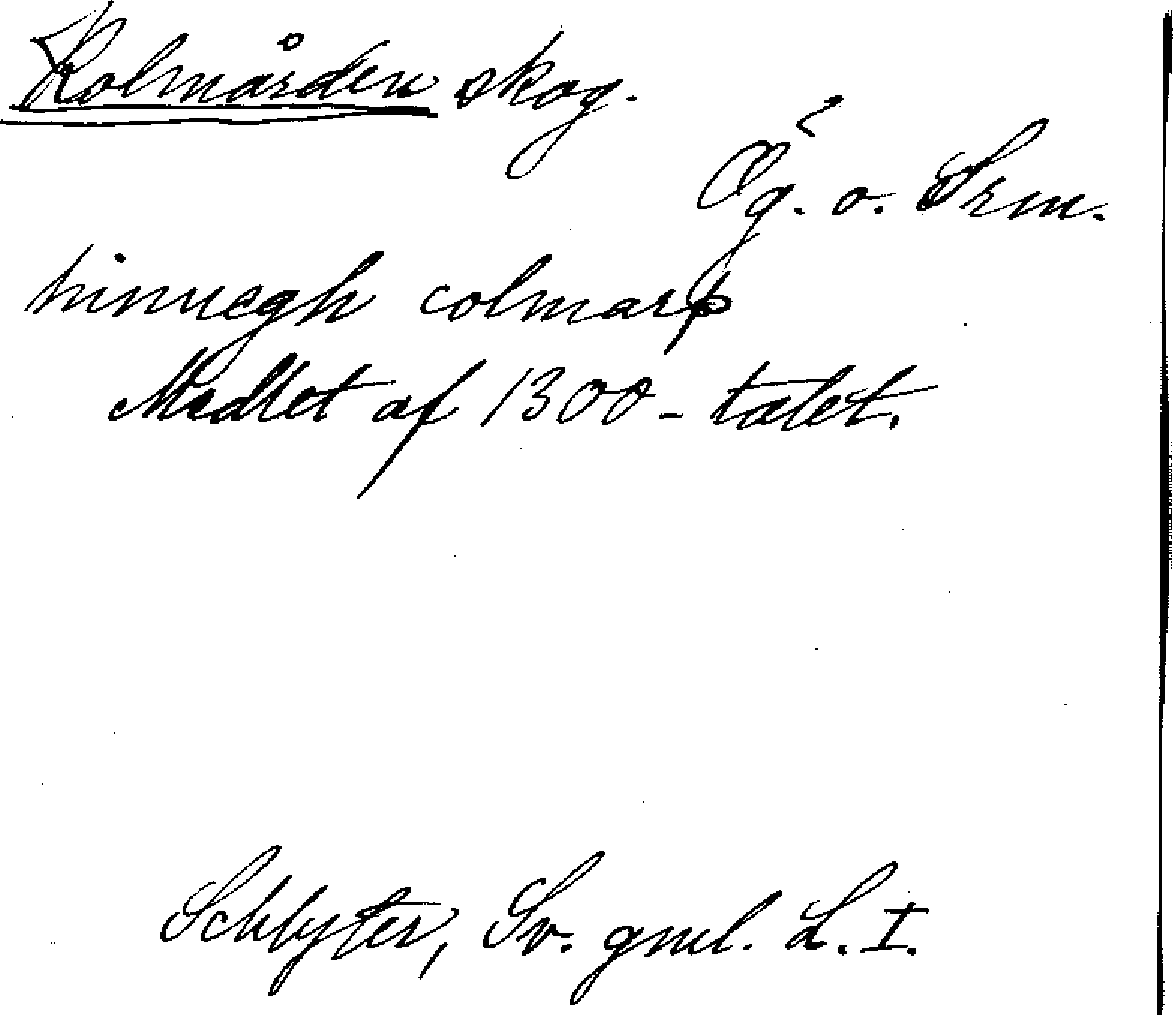 Kolmården skog.
Ög. o. Srm.
hinvegh colmarþ
Medlet af 1300-talet.
Schlyter, Sv. gml. L. I.